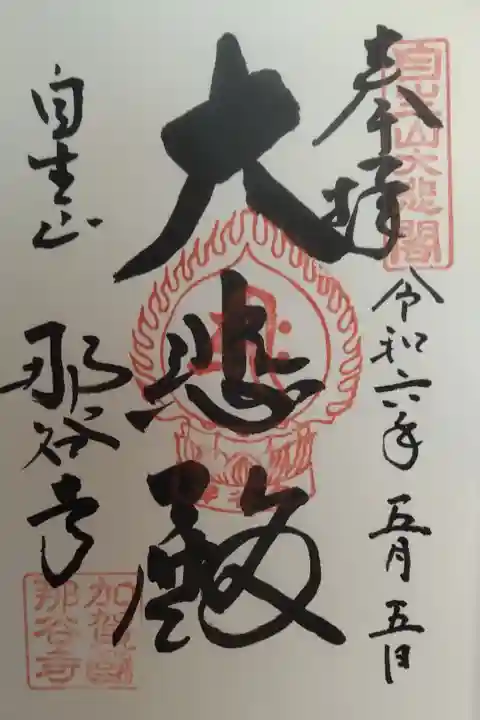 奉拝
自生山大悲閣
令和六年 五月五日
大悲殿
自生山
那谷寺
加賀國
那谷寺